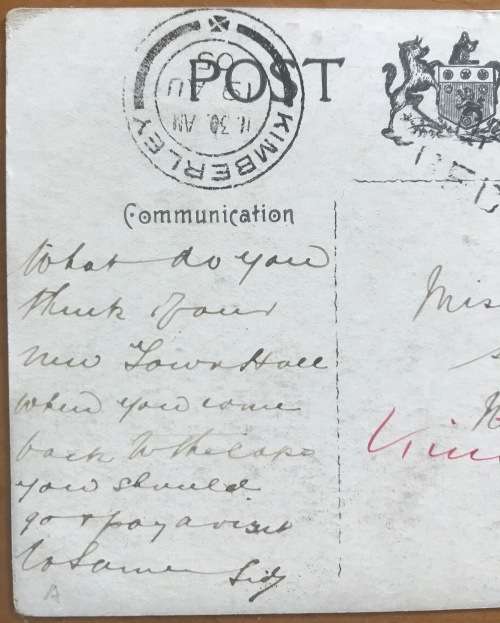 KIMBERLEY
11.30 AM
AU
05
POST
Communication
What do you
think of our
new Town Hall
when you come
back to the Cape
you should
go & pay a visit
to same Sid
Mis